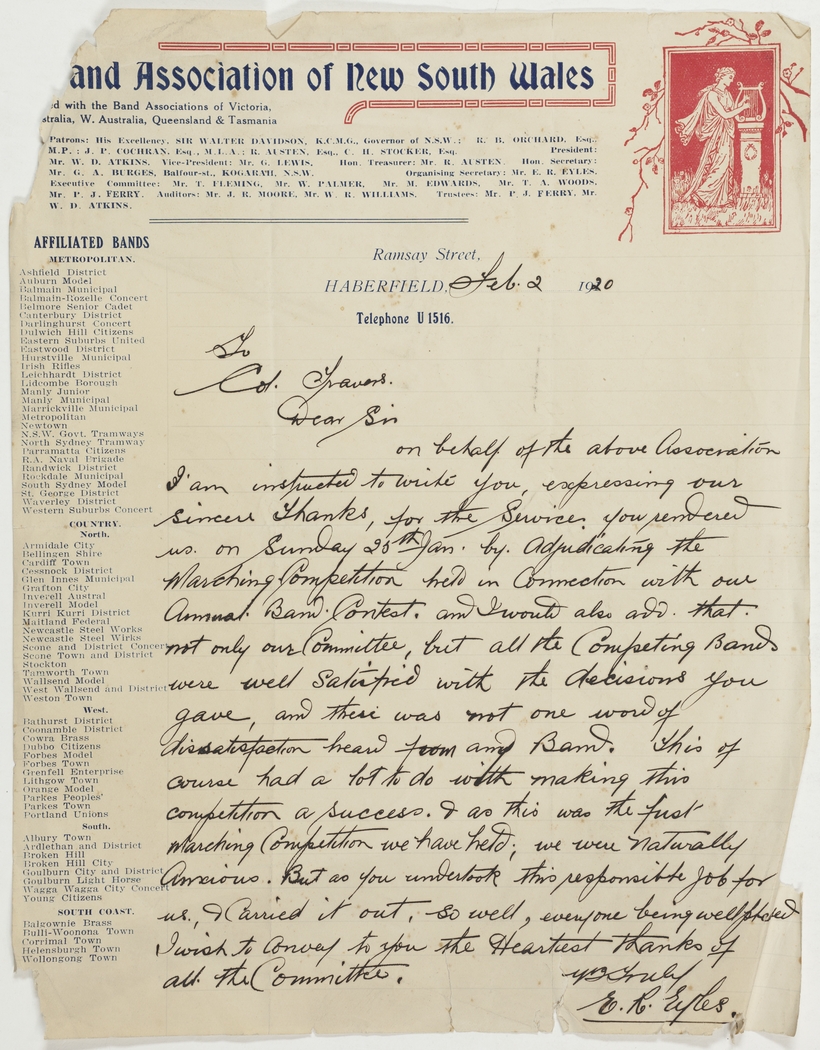 and Association of New South Wales
ed with the Band Associations of Victoria,
stralia, W. Australia, Queensland & Tasmania
Patrons: His Excellency, SIR WALTER DAVIDSON, K.C.M.G., Governor of N.S.W.; R. B. ORCHARD, Esq.,
M.P.; J. P. COCHRAN, Esq., M.L.A.; R. AUSTEN, Esq., C. H. STOCKER, Esq. President:
Mr. W. D. ATKINS, Vice-President: Mr. G. LEWIS, Hon. Treasurer: Mr. R. AUSTEN. Hon. Secretary:
Mr. G. A. BURGES, Balfour-st., KOGARAH, N.S.W. Organising Secretary: Mr. E. R. EYLES.
Executive Committee: Mr. T. FLEMING, Mr. W. PALMER, Mr. M. EDWARDS, Mr. T. A. WOODS,
Mr. P. J. FERRY. Auditors: Mr. J. R. MOORE, Mr. W. R. WILLIAMS. Trustees: Mr. P. J. FERRY, Mr.
W. D. ATKINS.
AFFILIATED BANDS
METROPOLITAN.
Ashfield District
Auburn Model
Balmain Municipal
Balmain-Rozelle Concert
Belmore Senior Cadet
Canterbury District
Darlinghurst Concert
Dulwich Hill Citizens
Eastern Suburbs United
Eastwood District
Hurstville Municipal
Irish Rifles
Leichhardt District
Lidcombe Borough
Manly Junior
Manly Municipal
Marrickville Municipal
Metropolitan
Newtown
N.S.W. Govt. Tramways
North Sydney Tramway
Parramatta Citizens
R.A. Naval Brigade
Randwick District
Rockdale Municipal
South Sydney Model
St. George District
Waverley District
Western Suburbs Concert
COUNTRY.
North.
Armidale City
Bellingen Shire
Cardiff Town
Cessnock District
Glen Innes Municipal
Grafton City
Inverell Austral
Inverell Model
Kurri Kurri District
Maitland Federal
Newcastle Steel Works
Newcastle Steel Wirks
Scone and District Concert
Scone Town and District
Stockton
Tamworth Town
Wallsend Model
West Wallsend and District
Weston Town
West.
Bathurst District
Coonamble District
Cowra Brass
Dubbo Citizens
Forbes Model
Forbes Town
Grenfell Enterprise
Lithgow Town
Orange Model
Parkes Peoples'
Parkes Town
Portland Unions
South.
Albury Town
Ardlethan and District
Broken Hill
Broken Hill City
Goulburn City and District
Goulburn Light Horse
Wagga Wagga City Concert
Young Citizens
SOUTH COAST.
Balgownie Brass
Bulli-Woonona Town
Corrimal Town
Helensburgh Town
Wollongong Town
Ramsay Street,
HABERFIELD, Feb. 2 1920
Telephone U 1516.
To
Col. Travers.
Dear Sir
on behalf of the above Association
I am instructed to write you, expressing our
sincere thanks, for the Service, you rendered
us. on Sunday 25th Jan. by. Adjudicating the
Marching Competition held in Connection with our
Annual Band Contest. and I would also add. that.
not only our Committee, but all the Competing Bands
were well Satisfied with the decisions you
gave, and there was not one word of
dissatisfaction heard from any Band. This of
course had a lot to do with making this
competition a success. & as this was the first
Marching Competition we have held; we were naturally
Anxious. But as you undertook this responsible Job for
us, & Carried it out, so well, everyone being well pleased
I wish to convey to you the Heartiest thanks of
all the Committee.
Yrs Truly
E. R. Eyles.